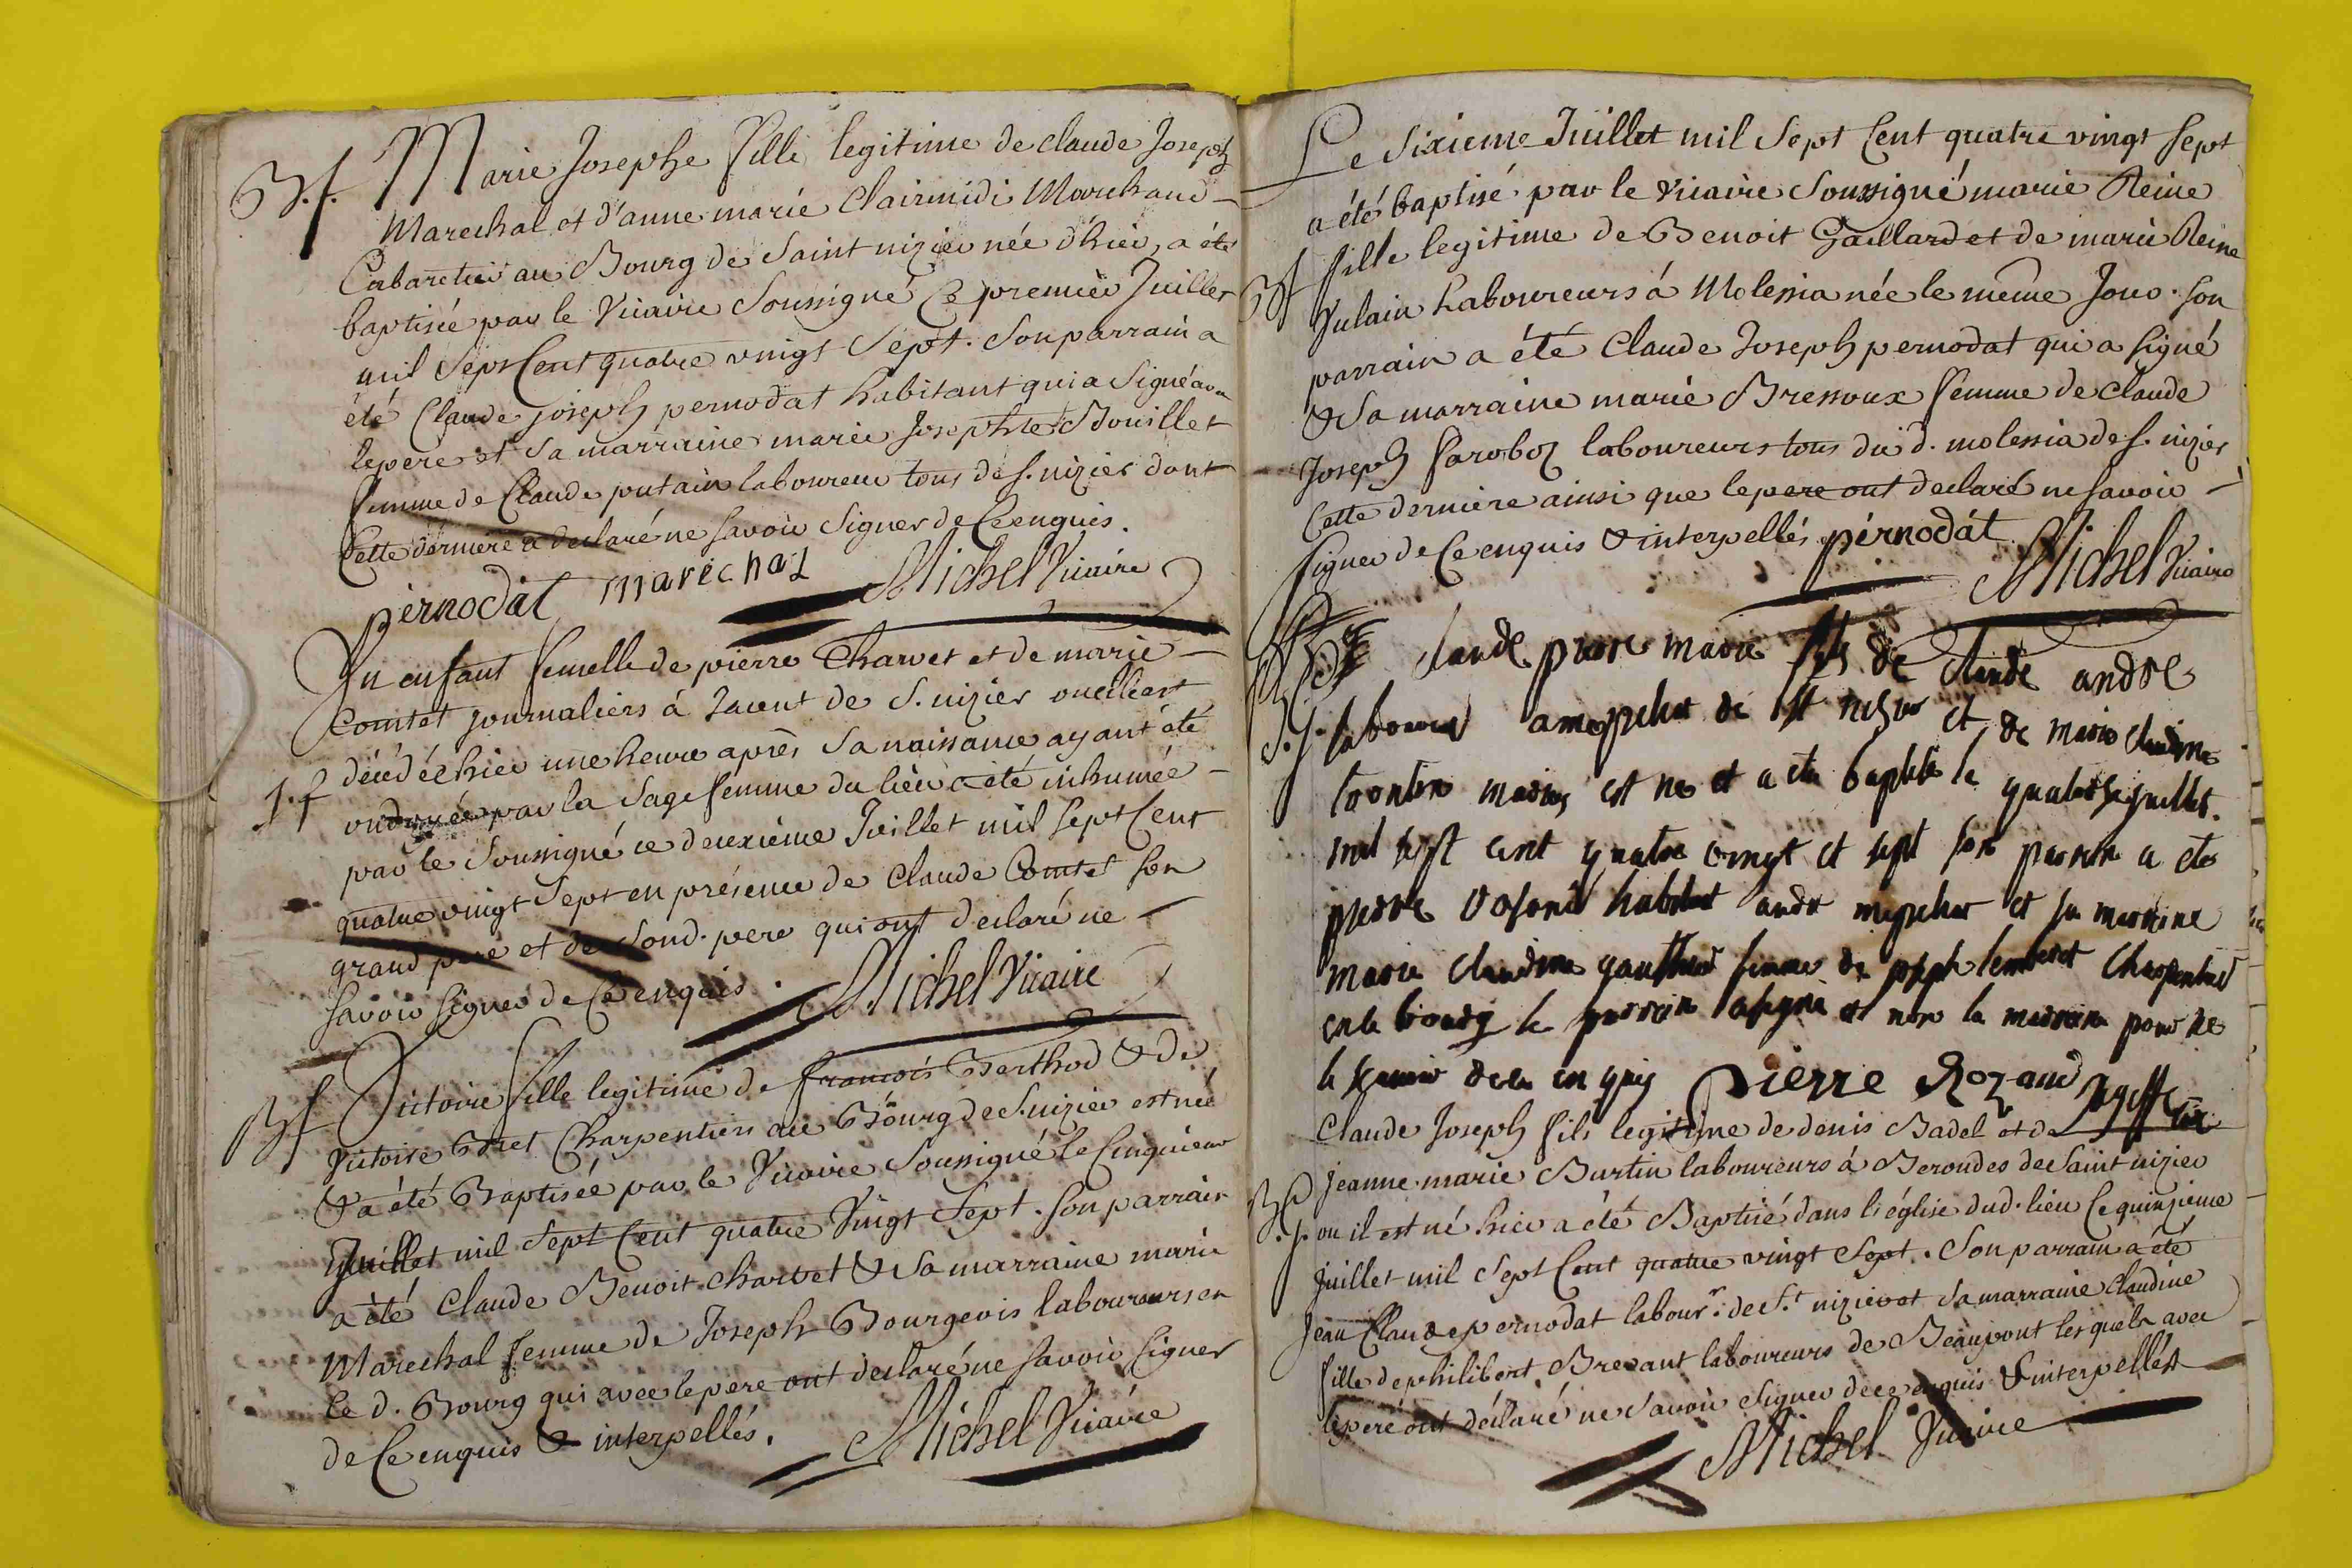 B.f. Marie Josephe fille legitime de claude Joseph
Marechal et d'anne marie Clairmidi Marchand
Cabaretier au Bourg de Saint nizier née d'hier, a été
baptisée par le Vicaire Soussigné Ce premier Juillet
mil Sept Cent quatre vingt Sept. Son parrain a
été Claude joseph pernodat habitant qui a Signé avec
le pere et Sa marraine marie Josephte Bouillet
femme de Claude putain laboureur tous de S. nizier dont
Cette derniere a declaré ne Savoir Signer de Ce enquis.
pernodat marechal Michel Vicaire
Un enfant femelle de pierre Charvet et de marie
Comtet journaliers à de S. nizier
décédé hier une heure après Sa naissance ayant été
1.f ondoyée par la Sage femme du lieu a été inhumée
par le Soussigné ce deuxième Juillet mil Sept Cent
quatre vingt Sept en présence de Claude Comtet son
grand pere et de Sond. pere qui ont declaré ne
Savoir Signer de Ce enquis. Michel Vicaire
Bf Victoire fille legitime de francois Berthod & de
Victoire Bret Charpentiers au Bourg de S. nizier est née
& a été Baptisée par le Vicaire Soussigné le Cinquieme
Juillet mil Sept Cent quatre Vingt Sept. Son parrain
a été Claude Benoit charvet & Sa marraine marie
Marechal femme de Joseph Bourgeois laboureurs en
le d. Bourg qui avec le pere ont declaré ne Savoir Signer
de Ce enquis & interpellés. Michel Vicaire
Le Sixieme Juillet mil Sept Cent quatre vingt Sept
a été baptisé par le Vicaire Soussigné marie Reine
Bf fille legitime de Benoit Gaillard et de marie Reine
Vulain Laboureurs à Molessia née le meme Jour. Son
parrain a été Claude Joseph pernodat qui a Signé
& Sa marraine marie Bressoux femme de Claude
Joseph faroboz laboureurs tous du d. molessia de S. nizier
Cette derniere ainsi que le pere ont declaré ne Savoir
Signer de Ce enquis & interpellés. pernodat Michel Vicaire
claude piere marie fils de claude andre
laboureur a de st et de marie claudine
maries est ne et a ete baptise le quatorse juillet.
mil sept cent quatre vingt et sept son parrin a ete
pierre habitant et sa marrine
marie claudine gauthier femme de joseph charpentier
en le bourg le parrein a signe et non la marreine pour ne
le scavoir de ce enquis Pierre Rozand
Claude Joseph fils legitime de denis Badel et de
B. Jeanne marie Burtin laboureurs à Berondes de Saint nizier
S.f. ou il est né hier a été Baptisé dans l'église dud. lieu Ce quinzieme
Juillet mil Sept Cent quatre vingt Sept. Son parrain a été
Jean Claude pernodat labour.r de S.t nizier et Sa marraine Claudine
fille de philibert Brevant laboureurs de Beaupont lesquels avec
le pere ont déclaré ne Savoir Signer de ce enquis & interpellés
Michel Vicaire